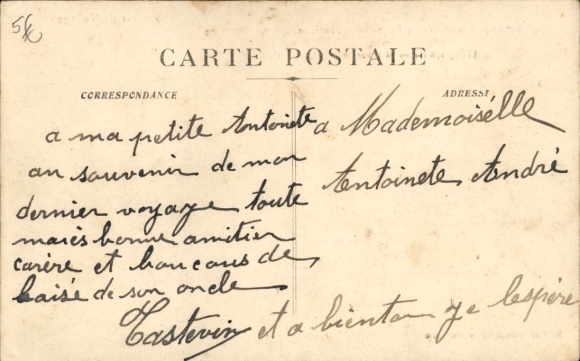 5f
CARTE POSTALE
CORRESPONDANCE
ADRESSE
a ma petite Antoinete
au souvenir de mon
dernier voyage toute
mares bonne amitier
carère et boucous de
baisé de son oncle
Tastevin et a bientau je lespère
a Mademoisélle
Antoinete André